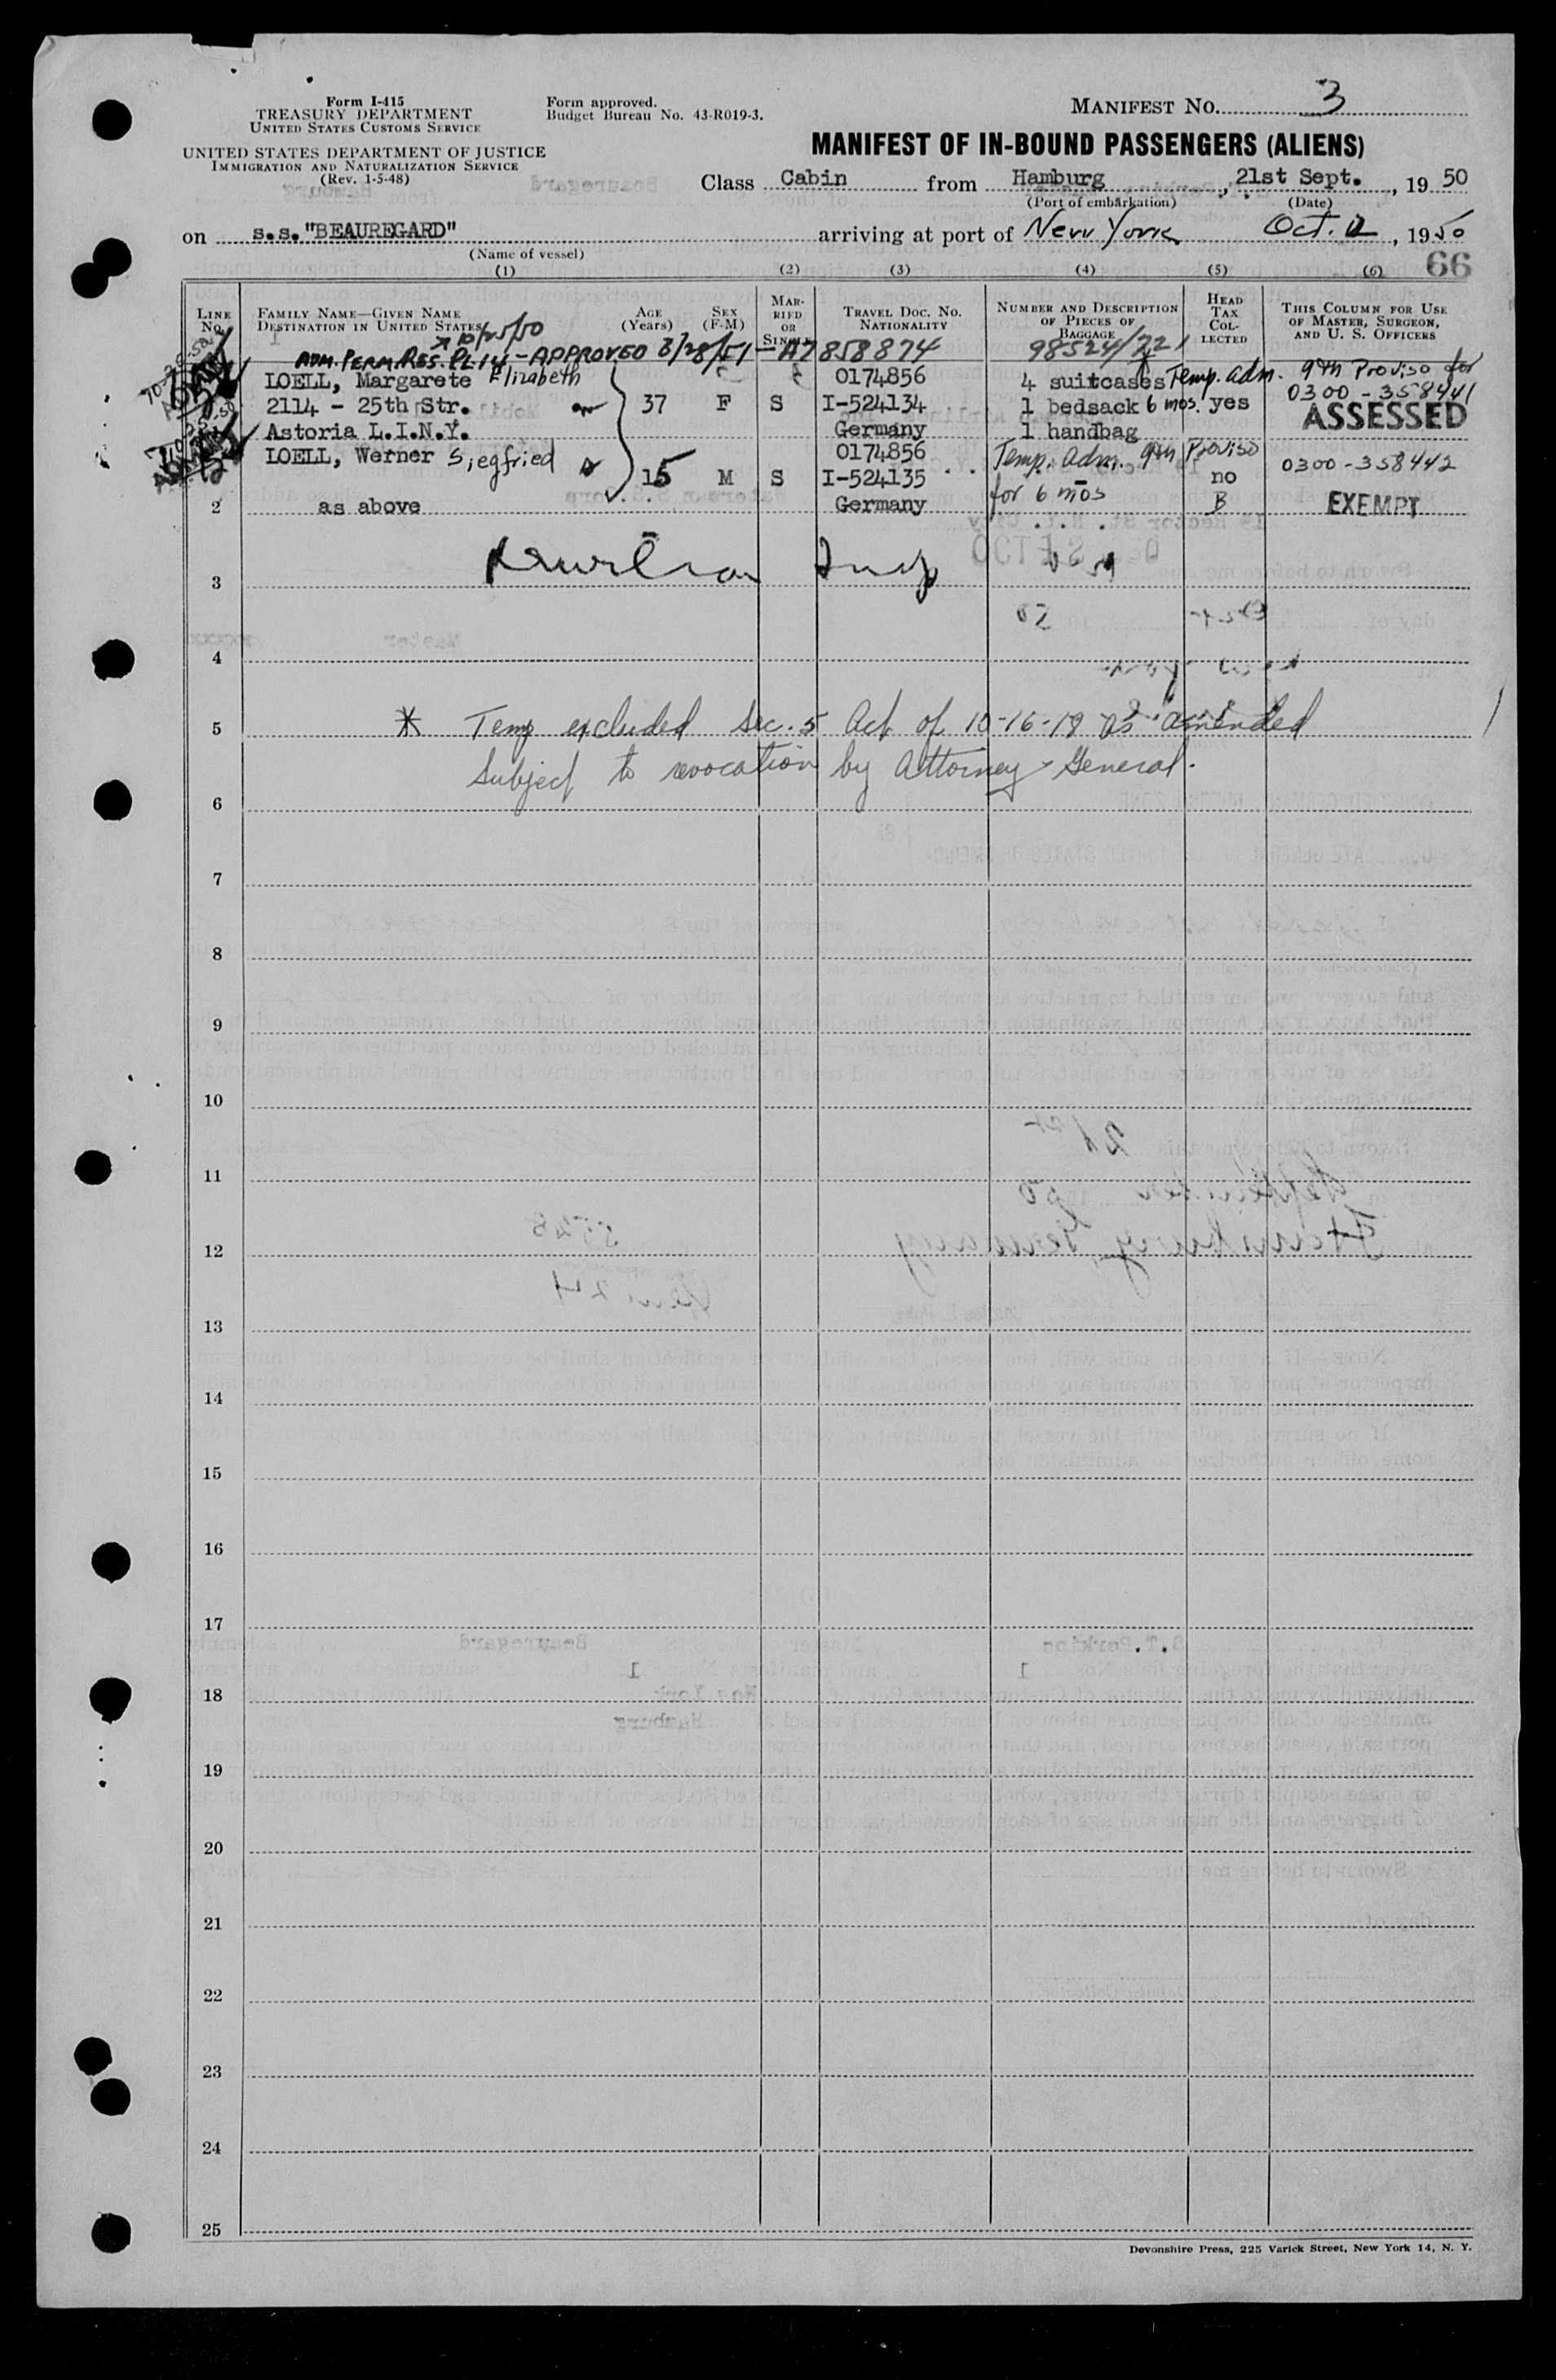 Form I-415
TREASURY DEPARTMENT
UNITED STATES CUSTOMS SERVICE
UNITED STATES DEPARTMENT OF JUSTICE
IMMIGRATION AND NATURALIZATION SERVICE
(Rev. 1-5-48)
Form approved.
Budget Bureau No. 43-R019-3.
MANIFEST NO. 3
MANIFEST OF IN-BOUND PASSENGERS (ALIENS)
Class Cabin from Hamburg, 21st Sept., 1950
(Port of embarkation) (Date)
on s.s. "BEAUREGARD" arriving at port of New York Oct. 2, 1950
(Name of vessel)
66
(1) (2) (3) (4) (5) (6)
LINE No.
FAMILY NAME—GIVEN NAME
DESTINATION IN UNITED STATES
AGE (Years)
SEX (F-M)
MARRIED OR SINGLE
TRAVEL DOC. NO. NATIONALITY
NUMBER AND DESCRIPTION OF PIECES OF BAGGAGE
HEAD TAX COLLECTED
THIS COLUMN FOR USE OF MASTER, SURGEON, AND U. S. OFFICERS
10/25/50
ADM. PERM. RES. PL 14 - APPROVED 3/28/51 - A7 858 874 98524/721
LOELL, Margarete Elizabeth 0174856 4 suitcases Temp. adm. 9th Proviso for
2114 - 25th Str. 37 F S I-524134 1 bedsack 6 mos. yes 0300-358441
Astoria L.I.N.Y. Germany 1 handbag ASSESSED
LOELL, Werner Siegfried 0174856 Temp. Adm. 9th Proviso
15 M S I-524135 for 6 mos no 0300-358442
2 as above Germany B EXEMPT
3
4
5 * Temp excluded Sec. 5 Act of 10-16-18 as amended
Subject to revocation by Attorney General.
6
7
8
9
10
11
12
13
14
15
16
17
18
19
20
21
22
23
24
25
Devonshire Press, 225 Varick Street, New York 14, N. Y.